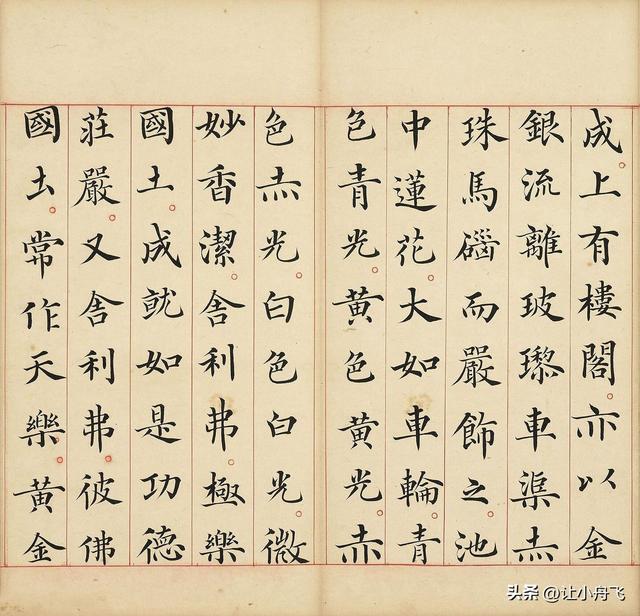 成。上有樓閣。亦以金
銀流離玻瓈車渠赤
珠馬碯而嚴飾之。池
中蓮花。大如車輪。青
色青光。黃色黃光。赤
色赤光。白色白光。微
妙香潔。舍利弗。極樂
國土。成就如是功德
莊嚴。又舍利弗。彼佛
國土。常作天樂。黃金
头条 @让小舟飞